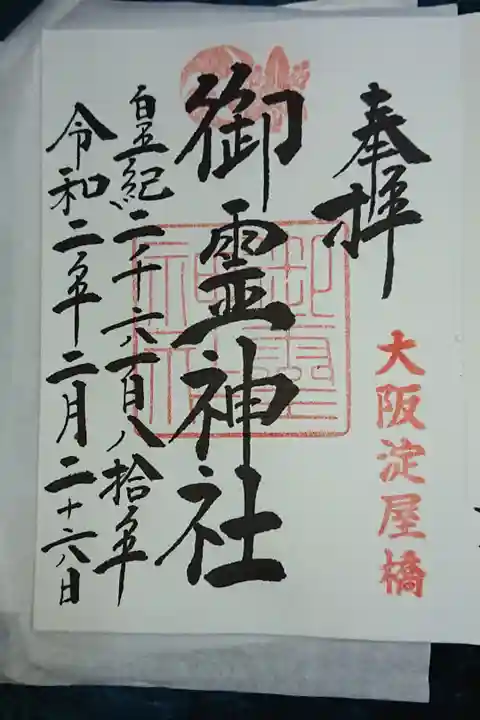 奉拝
大阪淀屋橋
御霊神社
御霊神社
皇紀二千六百八拾年
令和二年二月二十六日